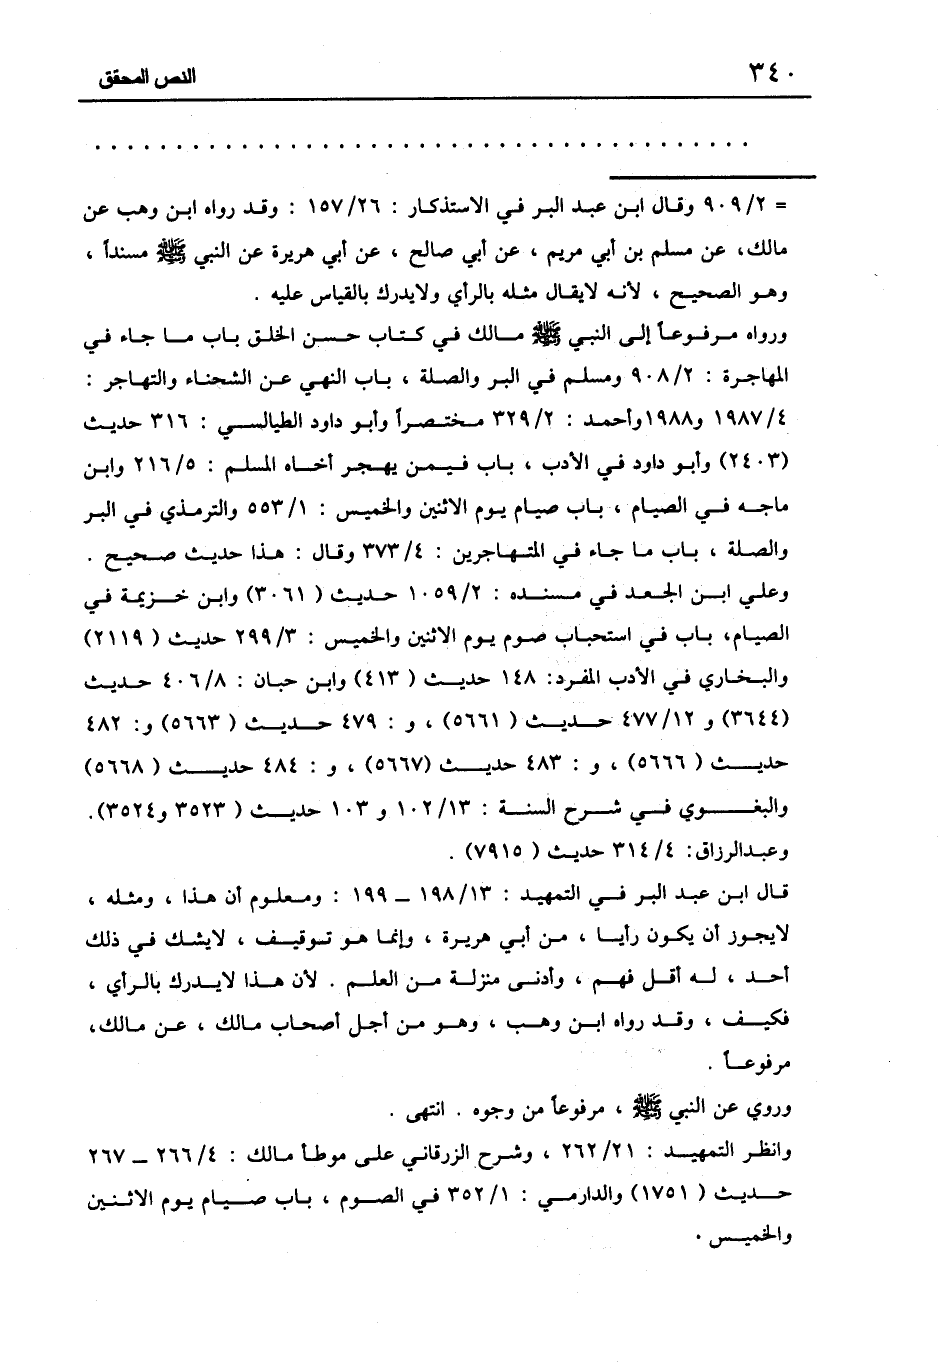 ٣٤٠ النص المحقق
. . . . . . . . . . . . . . . . . . . . . . . . . . . . . . . . . . . . . . .
= ٩٠٩/٢ وقال ابن عبد البر في الاستذكار : ١٥٧/٢٦ : وقد رواه ابن وهب عن
مالك، عن مسلم بن أبي مريم ، عن أبي صالح ، عن أبي هريرة عن النبي ﷺ مسنداً ،
وهو الصحيح ، لأنه لايقال مثله بالرأي ولايدرك بالقياس عليه .
ورواه مرفوعاً إلى النبي ﷺ مالك في كتاب حسن الخلق باب ما جاء في
المهاجرة : ٩٠٨/٢ ومسلم في البر والصلة ، باب النهي عن الشحناء والتهاجر :
١٩٨٧/٤ و١٩٨٨وأحمد : ٣٢٩/٢ مختصراً وأبو داود الطيالسي : ٣١٦ حديث
(٢٤٠٣) وأبو داود في الأدب ، باب فيمن يهجر أخاه المسلم : ٢١٦/٥ وابن
ماجه في الصيام ، باب صيام يوم الاثنين والخميس : ٥٥٣/١ والترمذي في البر
والصلة ، باب ما جاء في المتهاجرين : ٣٧٣/٤ وقال : هذا حديث صحيح .
وعلي ابن الجعد في مسنده : ١٠٥٩/٢ حديث ( ٣٠٦١) وابن خزيمة في
الصيام، باب في استحباب صوم يوم الاثنين والخميس : ٢٩٩/٣ حديث ( ٢١١٩)
والبخاري في الأدب المفرد: ١٤٨ حديث ( ٤١٣) وابن حبان : ٤٠٦/٨ حديث
(٣٦٤٤) و ٤٧٧/١٢ حديث ( ٥٦٦١) ، و : ٤٧٩ حديث ( ٥٦٦٣) و: ٤٨٢
حديث ( ٥٦٦٦) ، و : ٤٨٣ حديث (٥٦٦٧) ، و : ٤٨٤ حديث ( ٥٦٦٨)
والبغوي في شرح السنة : ١٠٢/١٣ و ١٠٣ حديث ( ٣٥٢٣ و٣٥٢٤).
وعبدالرزاق: ٣١٤/٤ حديث ( ٧٩١٥) .
قال ابن عبد البر في التمهيد : ١٩٨/١٣ ــ ١٩٩ : ومعلوم أن هذا ، ومثله ،
لايجوز أن يكون رأيا ، من أبي هريرة ، وإنما هو توقيف ، لايشك في ذلك
أحد ، له أقل فهم ، وأدنى منزلة من العلم . لأن هذا لايدرك بالرأي ،
فكيف ، وقد رواه ابن وهب ، وهو من أجل أصحاب مالك ، عن مالك،
مرفوعاً .
وروي عن النبي ﷺ ، مرفوعاً من وجوه . انتهى .
وانظر التمهيد : ٢٦٢/٢١ ، وشرح الزرقاني على موطأ مالك : ٢٦٦/٤ ــ ٢٦٧
حديث ( ١٧٥١) والدارمي : ٣٥٢/١ في الصوم ، باب صيام يوم الاثنين
والخميس .